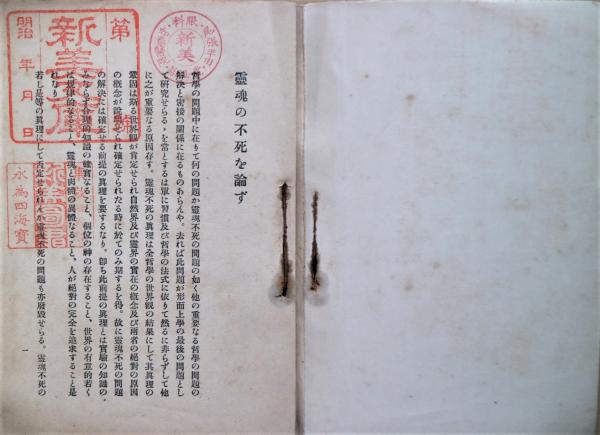 靈魂の不死を論ず
哲學の問題中に在りて何の問題か靈魂不死の問題の如く他の重要なる哲學の問題の
解決と密接の關係に在るものあらんや。去れば此問題が形而上學の最後の問題とし
て研究せらるゝを當とするは單に習慣及び哲學の法式に依りて然るに非らずして他
に之が重要なる原因存す。靈魂不死の眞理は全哲學の世界觀の結果にして其眞理の
鞏固は斯る世界觀が肯定せられ自然界及び靈界の實在の概念及び兩者の絕對の原因
の概念が說明せられ確定せられたる時に於てのみ期するを得。故に靈魂不死の問題
の解決には確定せる前提の眞理を要するなり。卽ち此前提の眞理とは實驗の知識の
みならず合理的知識の確實なること、個位の神の存在すること、世界の有意的若く
は規律的なること、靈魂と肉體の異體なること、人が絕對の完全を追求すること是
れなり
若し是等の眞理にして否定せられんか靈魂不死の問題も亦廢毀せらる。靈魂不死の
一
第
新美
明治 年 月 日
新美
永為四海寶